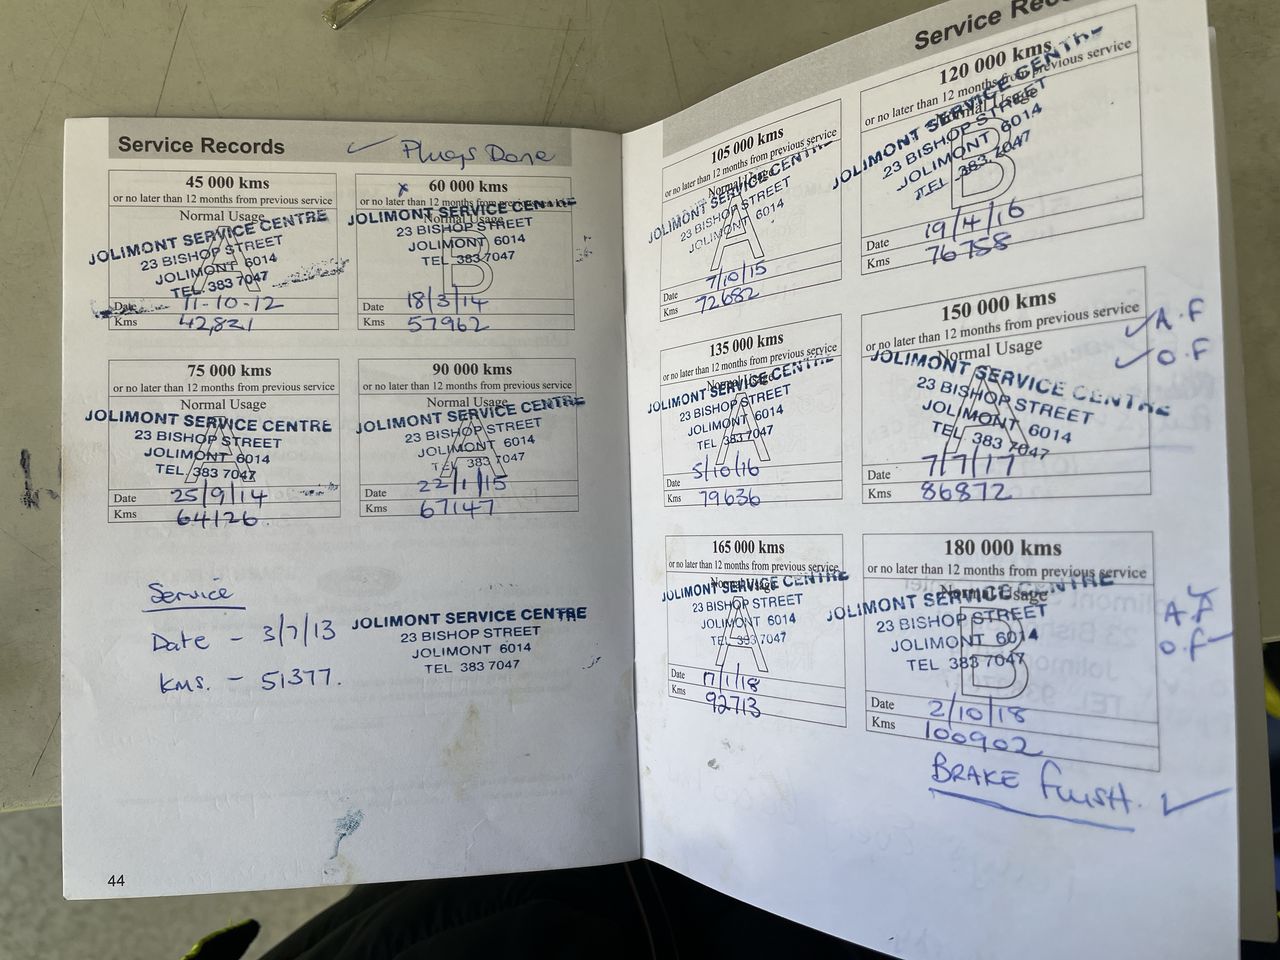 Service Records
✓ Plugs Done
45 000 kms
or no later than 12 months from previous service
Normal Usage
A
JOLIMONT SERVICE CENTRE
23 BISHOP STREET
JOLIMONT 6014
TEL. 383 7047
Date 11-10-12
Kms 42,821
x 60 000 kms
or no later than 12 months from previous service
Normal Usage
B
JOLIMONT SERVICE CENTRE
23 BISHOP STREET
JOLIMONT 6014
TEL 383 7047
Date 18/3/14
Kms 57962
75 000 kms
or no later than 12 months from previous service
Normal Usage
A
JOLIMONT SERVICE CENTRE
23 BISHOP STREET
JOLIMONT 6014
TEL 383 7047
Date 25/9/14
Kms 64126.
90 000 kms
or no later than 12 months from previous service
Normal Usage
A
JOLIMONT SERVICE CENTRE
23 BISHOP STREET
JOLIMONT 6014
TEL 383 7047
Date 22/1/15
Kms 67147
Service
Date - 3/7/13
Kms. - 51377.
JOLIMONT SERVICE CENTRE
23 BISHOP STREET
JOLIMONT 6014
TEL 383 7047
44
Service
105 000 kms
or no later than 12 months from previous service
Normal Usage
A
JOLIMONT SERVICE CENTRE
23 BISHOP STREET
JOLIMONT 6014
Date 7/10/15
Kms 72682
120 000 kms
or no later than 12 months from previous service
Normal Usage
B
JOLIMONT SERVICE CENTRE
23 BISHOP STREET
JOLIMONT 6014
TEL 383 7047
Date 19/4/16
Kms 76758
135 000 kms
or no later than 12 months from previous service
Normal Usage
A
JOLIMONT SERVICE CENTRE
23 BISHOP STREET
JOLIMONT 6014
TEL 383 7047
Date 5/10/16
Kms 79636
150 000 kms
or no later than 12 months from previous service
Normal Usage
A
✓ A.F
✓ O.F
JOLIMONT SERVICE CENTRE
23 BISHOP STREET
JOLIMONT 6014
TEL 383 7047
Date 7/7/17
Kms 86872
165 000 kms
or no later than 12 months from previous service
Normal Usage
A
JOLIMONT SERVICE CENTRE
23 BISHOP STREET
JOLIMONT 6014
TEL 383 7047
Date 17/1/18
Kms 92713
180 000 kms
or no later than 12 months from previous service
Normal Usage
B
JOLIMONT SERVICE CENTRE
23 BISHOP STREET
JOLIMONT 6014
TEL 383 7047
O.F
Date 2/10/18
Kms 100902
BRAKE ✓